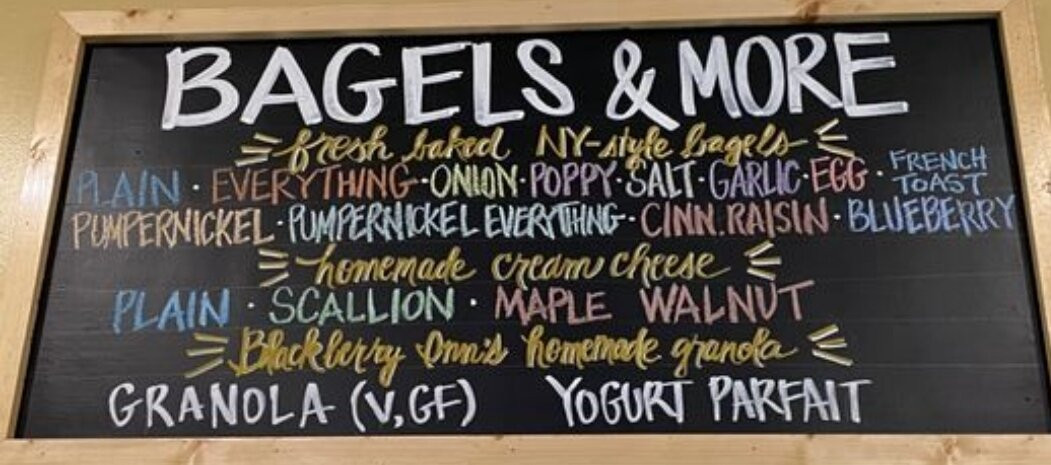 BAGELS & MORE
fresh baked NY-style bagels
PLAIN · EVERYTHING · ONION · POPPY · SALT · GARLIC · EGG · FRENCH TOAST
PUMPERNICKEL · PUMPERNICKEL EVERYTHING · CINN. RAISIN · BLUEBERRY
homemade cream cheese
PLAIN · SCALLION · MAPLE WALNUT
Blackberry Inn's homemade granola
GRANOLA (V, GF) YOGURT PARFAIT